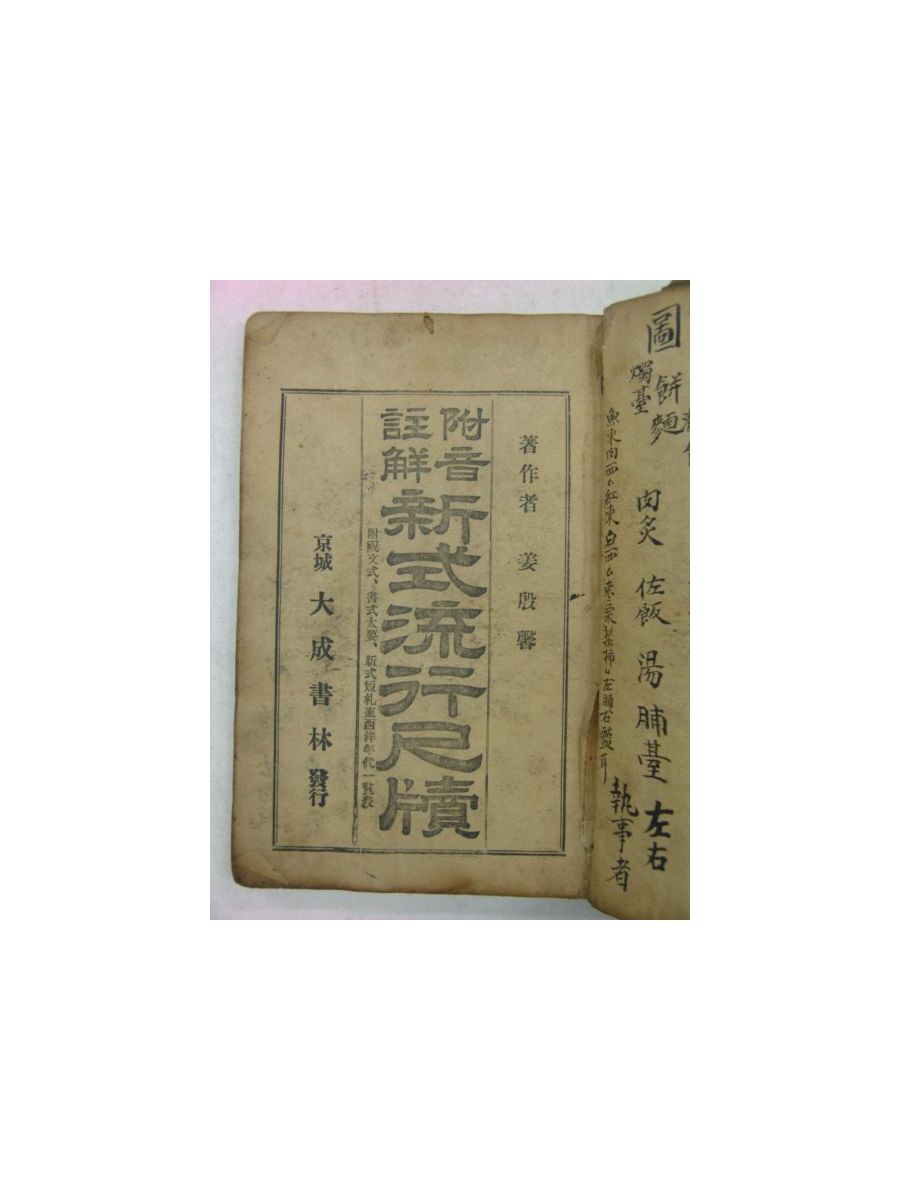 圖
餠 麵
燭臺
肉炙 佐飯 湯 脯 臺 左右
執事者
著作者 姜殷馨
附音
註解
新式流行尺牘
附祝文式、書式大要、新式短札東西洋年代一覽表
京城 大成書林 發行